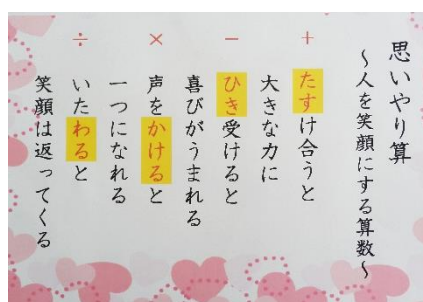 思いやり算
～人を笑顔にする算数～
+ たすけ合うと
大きな力に
− ひき受けると
喜びがうまれる
× 声をかけると
一つになれる
÷ いたわると
笑顔は返ってくる